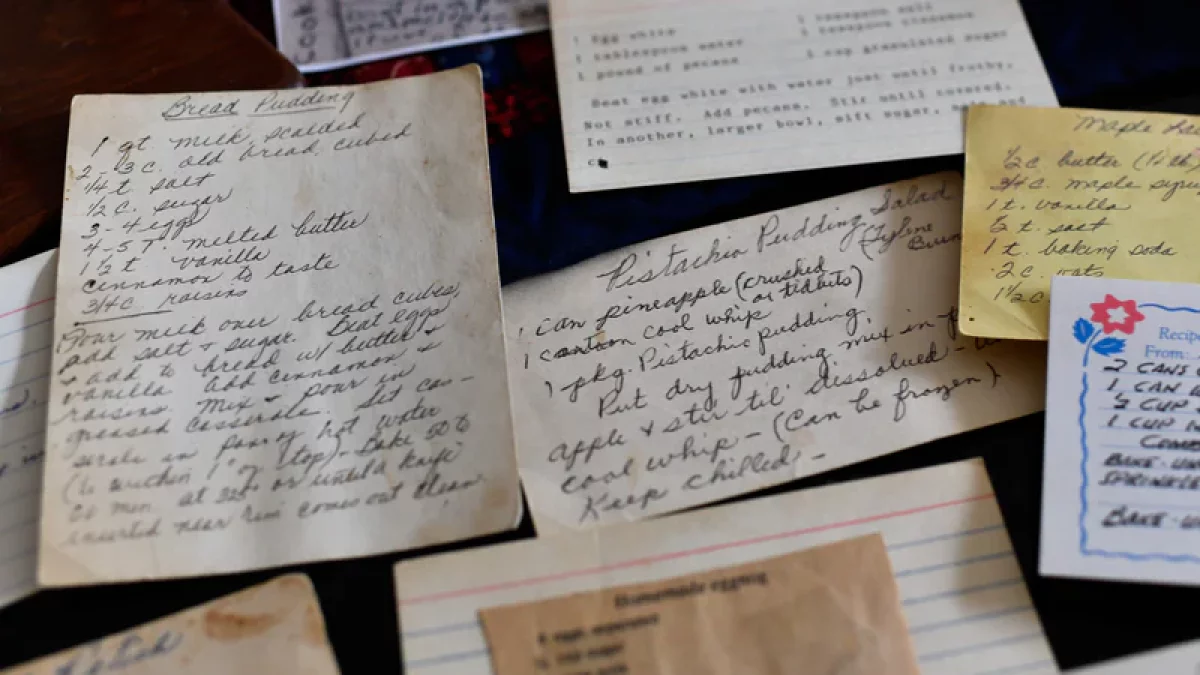 Cook
Bread Pudding
1 qt. milk, scalded
2-3 c. old bread, cubed
1/4 t. salt
1/2 c. sugar
3-4 eggs
4-5 T. melted butter
1 1/2 t. vanilla
cinnamon to taste
3/4 c. raisins
Pour milk over bread cubes,
add salt & sugar. Beat eggs
& add to bread w/ butter &
vanilla. Add cinnamon &
raisins. Mix & pour in
greased casserole. Set cas-
serole in pan of hot water
(to within 1" of top) - Bake 50 to
60 min. at 325° or until a knife
inserted near rim comes out clean.
1 Egg white
1 tablespoon water
1 pound of pecans
1 teaspoon salt
1 teaspoon cinnamon
1 cup granulated sugar
Beat egg white with water just until frothy,
Not stiff. Add pecans. Stir until covered.
In another, larger bowl, sift sugar, salt and
Pistachio Pudding Salad
1 can pineapple (crushed
or tidbits)
1 carton cool whip
1 pkg. Pistachio pudding.
Put dry pudding mix in
apple & stir til' dissolved -
cool whip - (Can be frozen)
Keep chilled -
Maple
1/2 c. butter
3/4 c. maple syru
1 t. vanilla
1/2 t. salt
1 t. baking soda
2 c. oats
1 1/2 c
Recipe
From:
2 CANS
1 CAN
1/2 CUP
1 CUP
BAKE
SPRINKLE
BAKE
Homemade eggnog
sugar